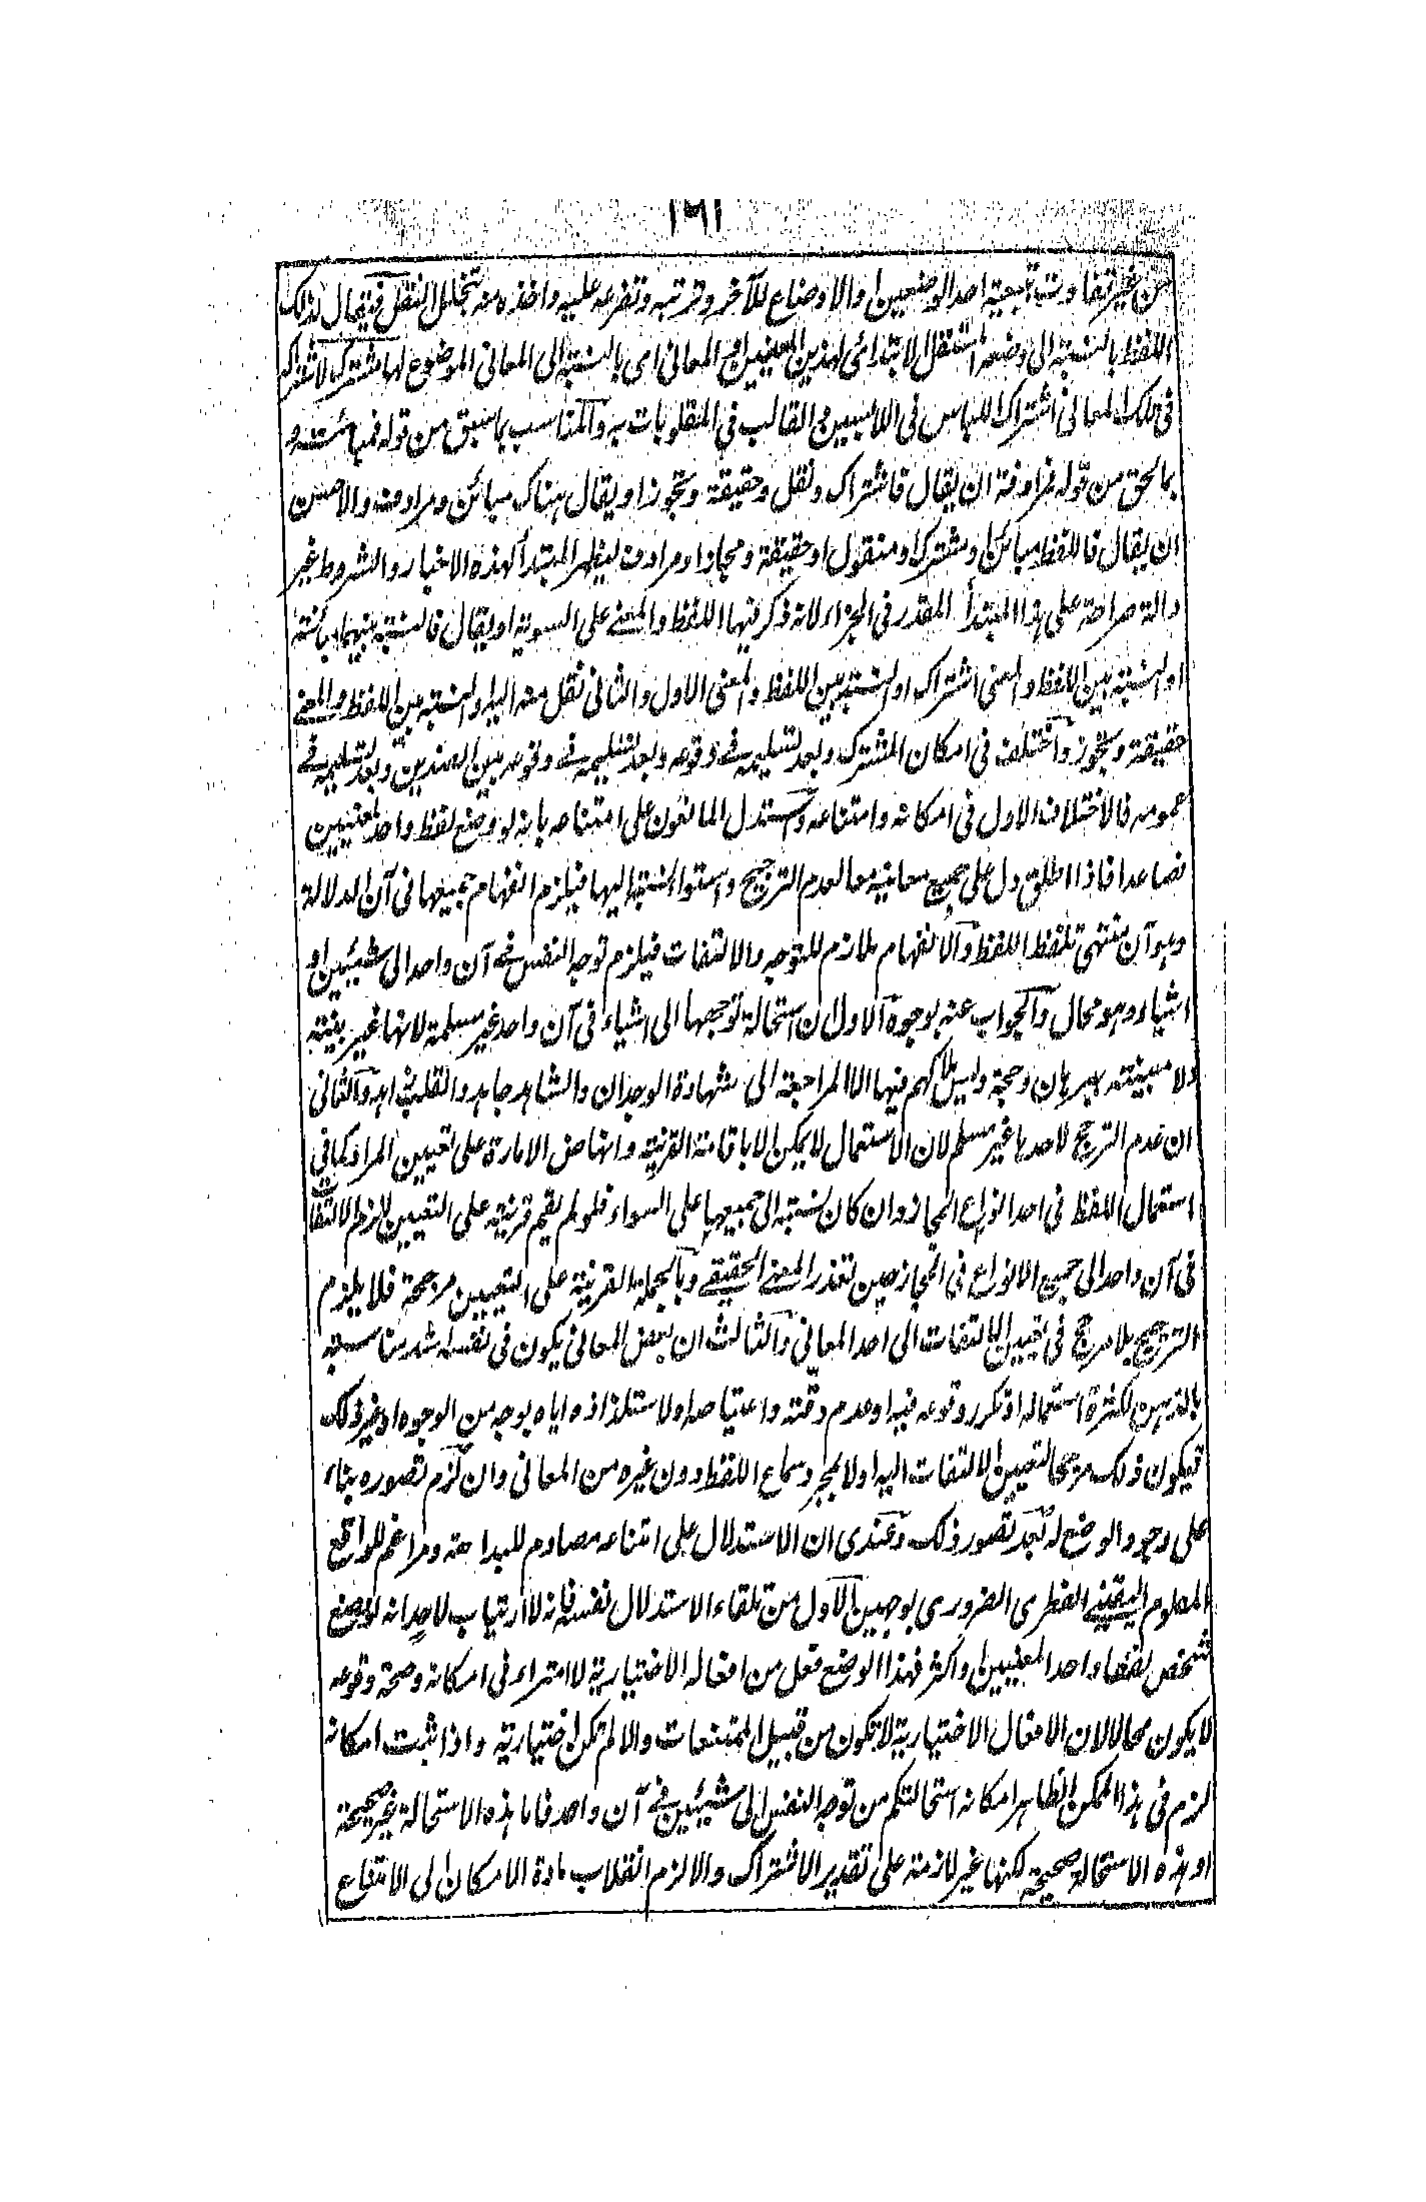 ١٦١
من غير تفاوت تبعية احد الوضعين او الاوضاع للآخر وترتبه وتفرعه عليه واخذه منه بتخلل النقل فيقال لذلك
اللفظ بالنسبة الى وضعه المستقل الابتدائى لهذين المعنيين او المعانى اى بالنسبة الى المعانى الموضوع لها مشترك لاشتراكه
فى تلك المعانى اشتراك اللباس فى اللابسين والقالب فى المقلوبات به والمناسب بما سبق من قوله فمباينة و
بما لحق من قوله فمرادفة ان يقال فاشتراك ونقل وحقيقة وتجوز او يقال هناك مبائن ومرادف والاحسن
ان يقال فاللفظ مبائن او مشترك او منقول او حقيقة ومجاز او مرادف ليظهر المبتدأ لهذه الاخبار والشروط غير
دالة صراحة على هذا المبتدأ المقدر فى الجزاء لانه ذكر فيها اللفظ والمعنى على السوية او يقال فالنسبة بينهما مباينة
او النسبة بين اللفظ والمعنى اشتراك او النسبة بين اللفظ والمعنى الاول والثانى نقل منه اليه او النسبة بين اللفظ والمعنى
حقيقة وتجوز واختلف فى امكان المشترك وبعد تسليمه فى وقوعه وبعد تسليمه فى وقوعه بين الضدين وبعد تسليمه فى
عمومه فالاختلاف الاول فى امكانه وامتناعه واستدل المانعون على امتناعه بانه لو وضع لفظ واحد لمعنيين
فصاعدا فاذا اطلق دل على جميع معانيه معا لعدم الترجيح واستواء نسبته اليها فيلزم انفهام جميعها فى آن الدلالة
وهو آن منتهى تلفظ اللفظ والانفهام ملازم للتوجه والالتفات فيلزم توجه النفس فى آن واحد الى شيئين او
اشياء وهو محال والجواب عنه بوجوه الاول ان استحالة توجهها الى اشياء فى آن واحد غير مسلمة لانها غير بينة
ولا مبينة ببرهان وحجة وليس ملاكهم فيها الا المراجعة الى شهادة الوجدان والشاهد جاهد والقلب شاهد والثانى
ان عدم الترجيح لاحدها غير مسلم لان الاستعمال لا يمكن الا باقامة القرينة وانهاض الامارة على تعيين المراد كما فى
استعمال اللفظ فى احد انواع المجاز وان كان نسبته الى جميعها على السواء فلو لم يقم قرينة على التعيين لزم الالتفات
فى آن واحد الى جميع الانواع فى المجاز حين تعذر المعنى الحقيقى وبالجملة القرينة على التعيين مرجحة فلا يلزم
الترجيح بلا مرجح فى تعيين الالتفات الى احد المعانى والثالث ان بعض المعانى يكون فى نفسه اشد مناسبة
بالذهن لكثرة استعماله او تكرر وقوعه فيه او عدم دقته واعتياصه او لاستلذاذه اياه بوجه من الوجوه او غير ذلك
فيكون ذلك مرجحا لتعيين الالتفات اليه اولا بمجرد سماع اللفظ دون غيره من المعانى وان لزم تصوره بناء
على وجود الوضع له بعد تصور ذلك وعندى ان الاستدلال على امتناعه مصادم للبداهة ومراغم للواقع
المعلوم اليقينى الفطرى الضرورى بوجهين الاول من تلقاء الاستدلال نفسه فانه لا ارتياب لاحد انه لو وضع
شخص لفظا واحدا لمعنيين او اكثر فهذا الوضع فعل من افعاله الاختيارية لا امتراء فى امكانه وصحة وقوعه
لا يكون محالا لان الافعال الاختيارية لا تكون من قبيل الممتنعات والا لم تكن اختيارية واذا ثبت امكانه
لزم فى هذا الممكن الظاهر امكانه استحالتكم من توجه النفس الى شيئين فى آن واحد فاما هذه الاستحالة غير صحيحة
او هذه الاستحالة صحيحة لكنها غير لازمة على تقدير الاشتراك والا لزم انقلاب مادة الامكان الى الامتناع